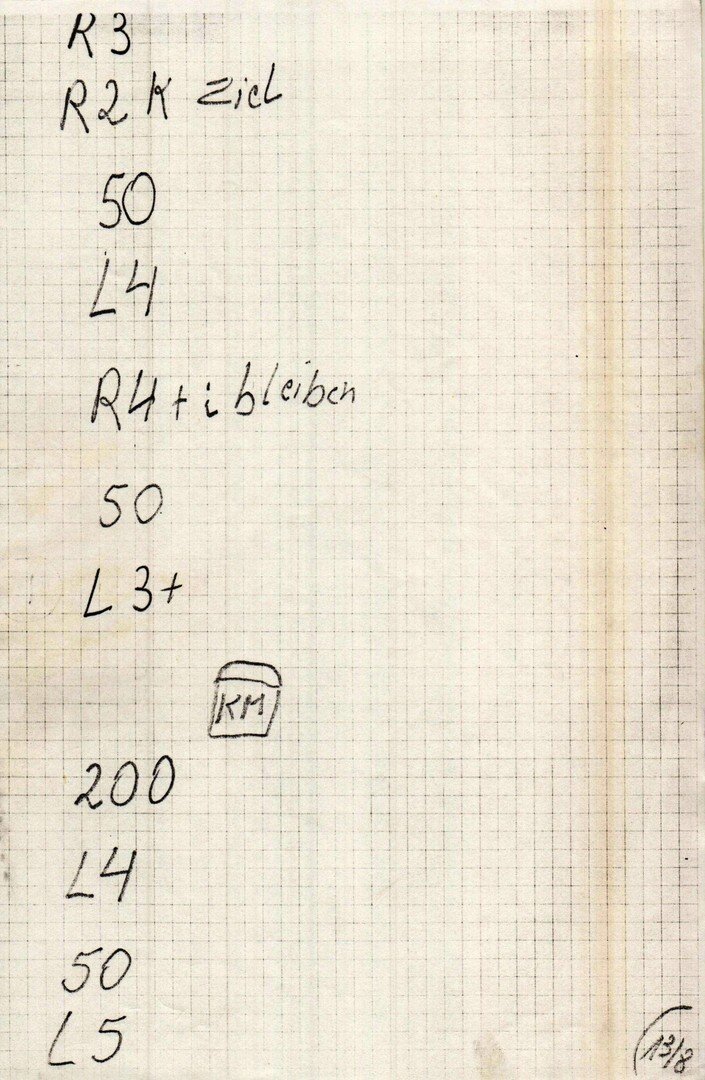 R3
R2 K Ziel
50
L4
R4 + i bleiben
50
L 3+
KM
200
L4
50
L5
13/8